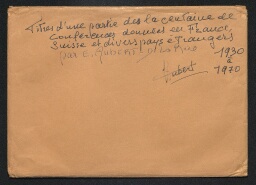 Titres d'une partie des la centaine de
Conférences données en France,
Suisse et divers pays étrangers
par E. 1930
à
Hubert 1970